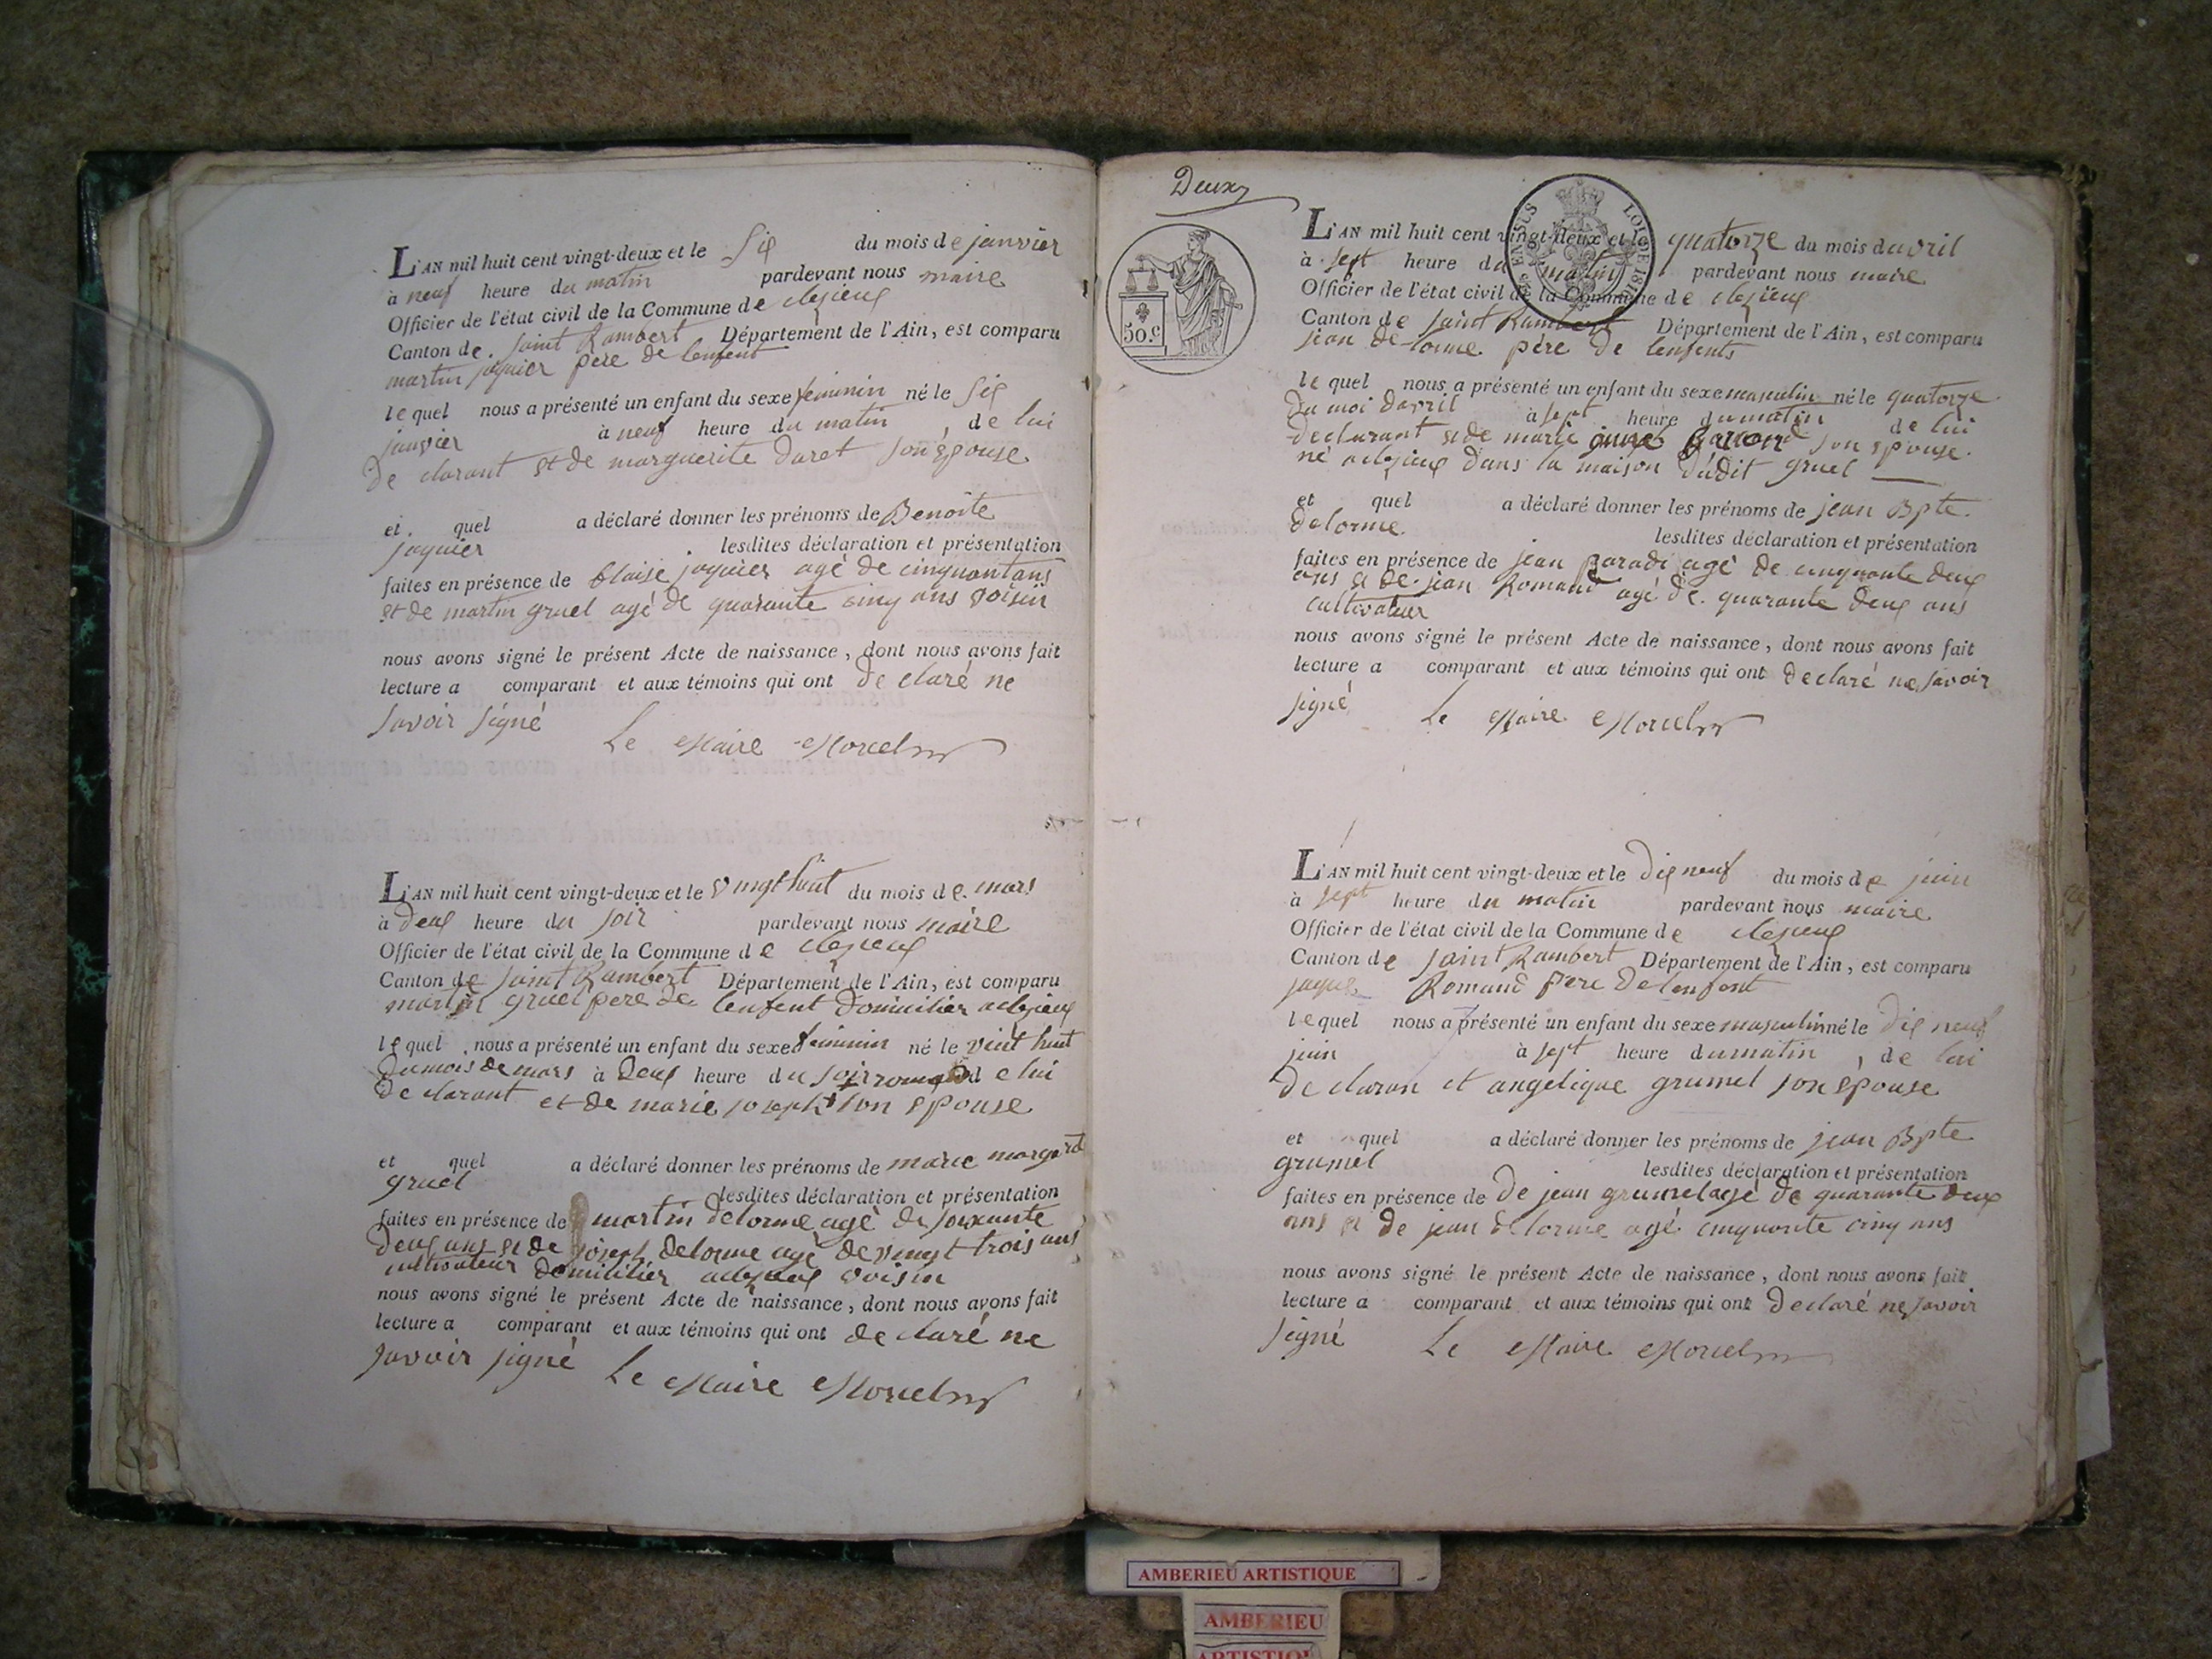 L'AN mil huit cent vingt-deux et le Six du mois de janvier
à neuf heure du matin pardevant nous maire
Officier de l'état civil de la Commune de clezieux
Canton de Saint Rambert Département de l'Ain, est comparu
martin joguier père de lenfent
le quel nous a présenté un enfant du sexe feminin né le Six
janvier à neuf heure du matin, de lui
de clarant et de marguerite duret Son épouse
et quel a déclaré donner les prénoms de Benoite
joguier lesdites déclaration et présentation
faites en présence de blaise joguier agé de cinquant ans
et de martin gruel agé de quarante cinq ans voisin
nous avons signé le présent Acte de naissance, dont nous avons fait
lecture a comparant et aux témoins qui ont de claré ne
Savoir Signé
Le Maire Morel
L'AN mil huit cent vingt-deux et le vingt huit du mois de mars
à deux heure du soir pardevant nous maire
Officier de l'état civil de la Commune de clezieux
Canton de Saint Rambert Département de l'Ain, est comparu
martin gruel pere de lenfent domicilier aclezieux
le quel nous a présenté un enfant du sexe feminin né le vint huit
du mois de mars à deux heure du Soir de lui
de clarant et de marie joseph Son épouse
et quel a déclaré donner les prénoms de marie
gruel lesdites déclaration et présentation
faites en présence de martin delorme agé de soixante
deux ans et de joseph delorme agé de vingt trois ans
cultivateur domicilier aclezieux voisin
nous avons signé le présent Acte de naissance, dont nous avons fait
lecture a comparant et aux témoins qui ont de claré ne
Savoir signé Le Maire Morel
Deux
50.c
L'AN mil huit cent vingt-deux et le quatorze du mois davril
à Sept heure du matin pardevant nous maire
Officier de l'état civil de la Commune de clezieux
Canton de Saint Rambert Département de l'Ain, est comparu
jean de lorme père de lenfents
le quel nous a présenté un enfant du sexe masculin né le quatorze
du moi davril à Sept heure du matin de lui
declarant et de marie Son épouse
né aclezieux dans la maison dudit gruel
et quel a déclaré donner les prénoms de jean Bpte
delorme lesdites déclaration et présentation
faites en présence de jean paradi agé de cinquante deux
ans et de jean Romand agé de quarante deux ans
cultivateur
nous avons signé le présent Acte de naissance, dont nous avons fait
lecture a comparant et aux témoins qui ont declaré ne Savoir
Signé Le Maire Morel
L'AN mil huit cent vingt-deux et le dix neuf du mois de juin
à Sept heure du matin pardevant nous maire
Officier de l'état civil de la Commune de clezieux
Canton de Saint Rambert Département de l'Ain, est comparu
jaque Romand Père de lenfent
le quel nous a présenté un enfant du sexe masculin né le dix neuf
juin à Sept heure du matin, de lui
de claran et angelique grumel Son épouse
et quel a déclaré donner les prénoms de jean Bpte
grumel lesdites déclaration et présentation
faites en présence de de jean grumel agé de quarante deux
ans et de jean delorme agé cinquante cinq ans
nous avons signé le présent Acte de naissance, dont nous avons fait
lecture a comparant et aux témoins qui ont declaré ne Savoir
Signé Le Maire Morel
AMBERIEU ARTISTIQUE
AMBERIEU